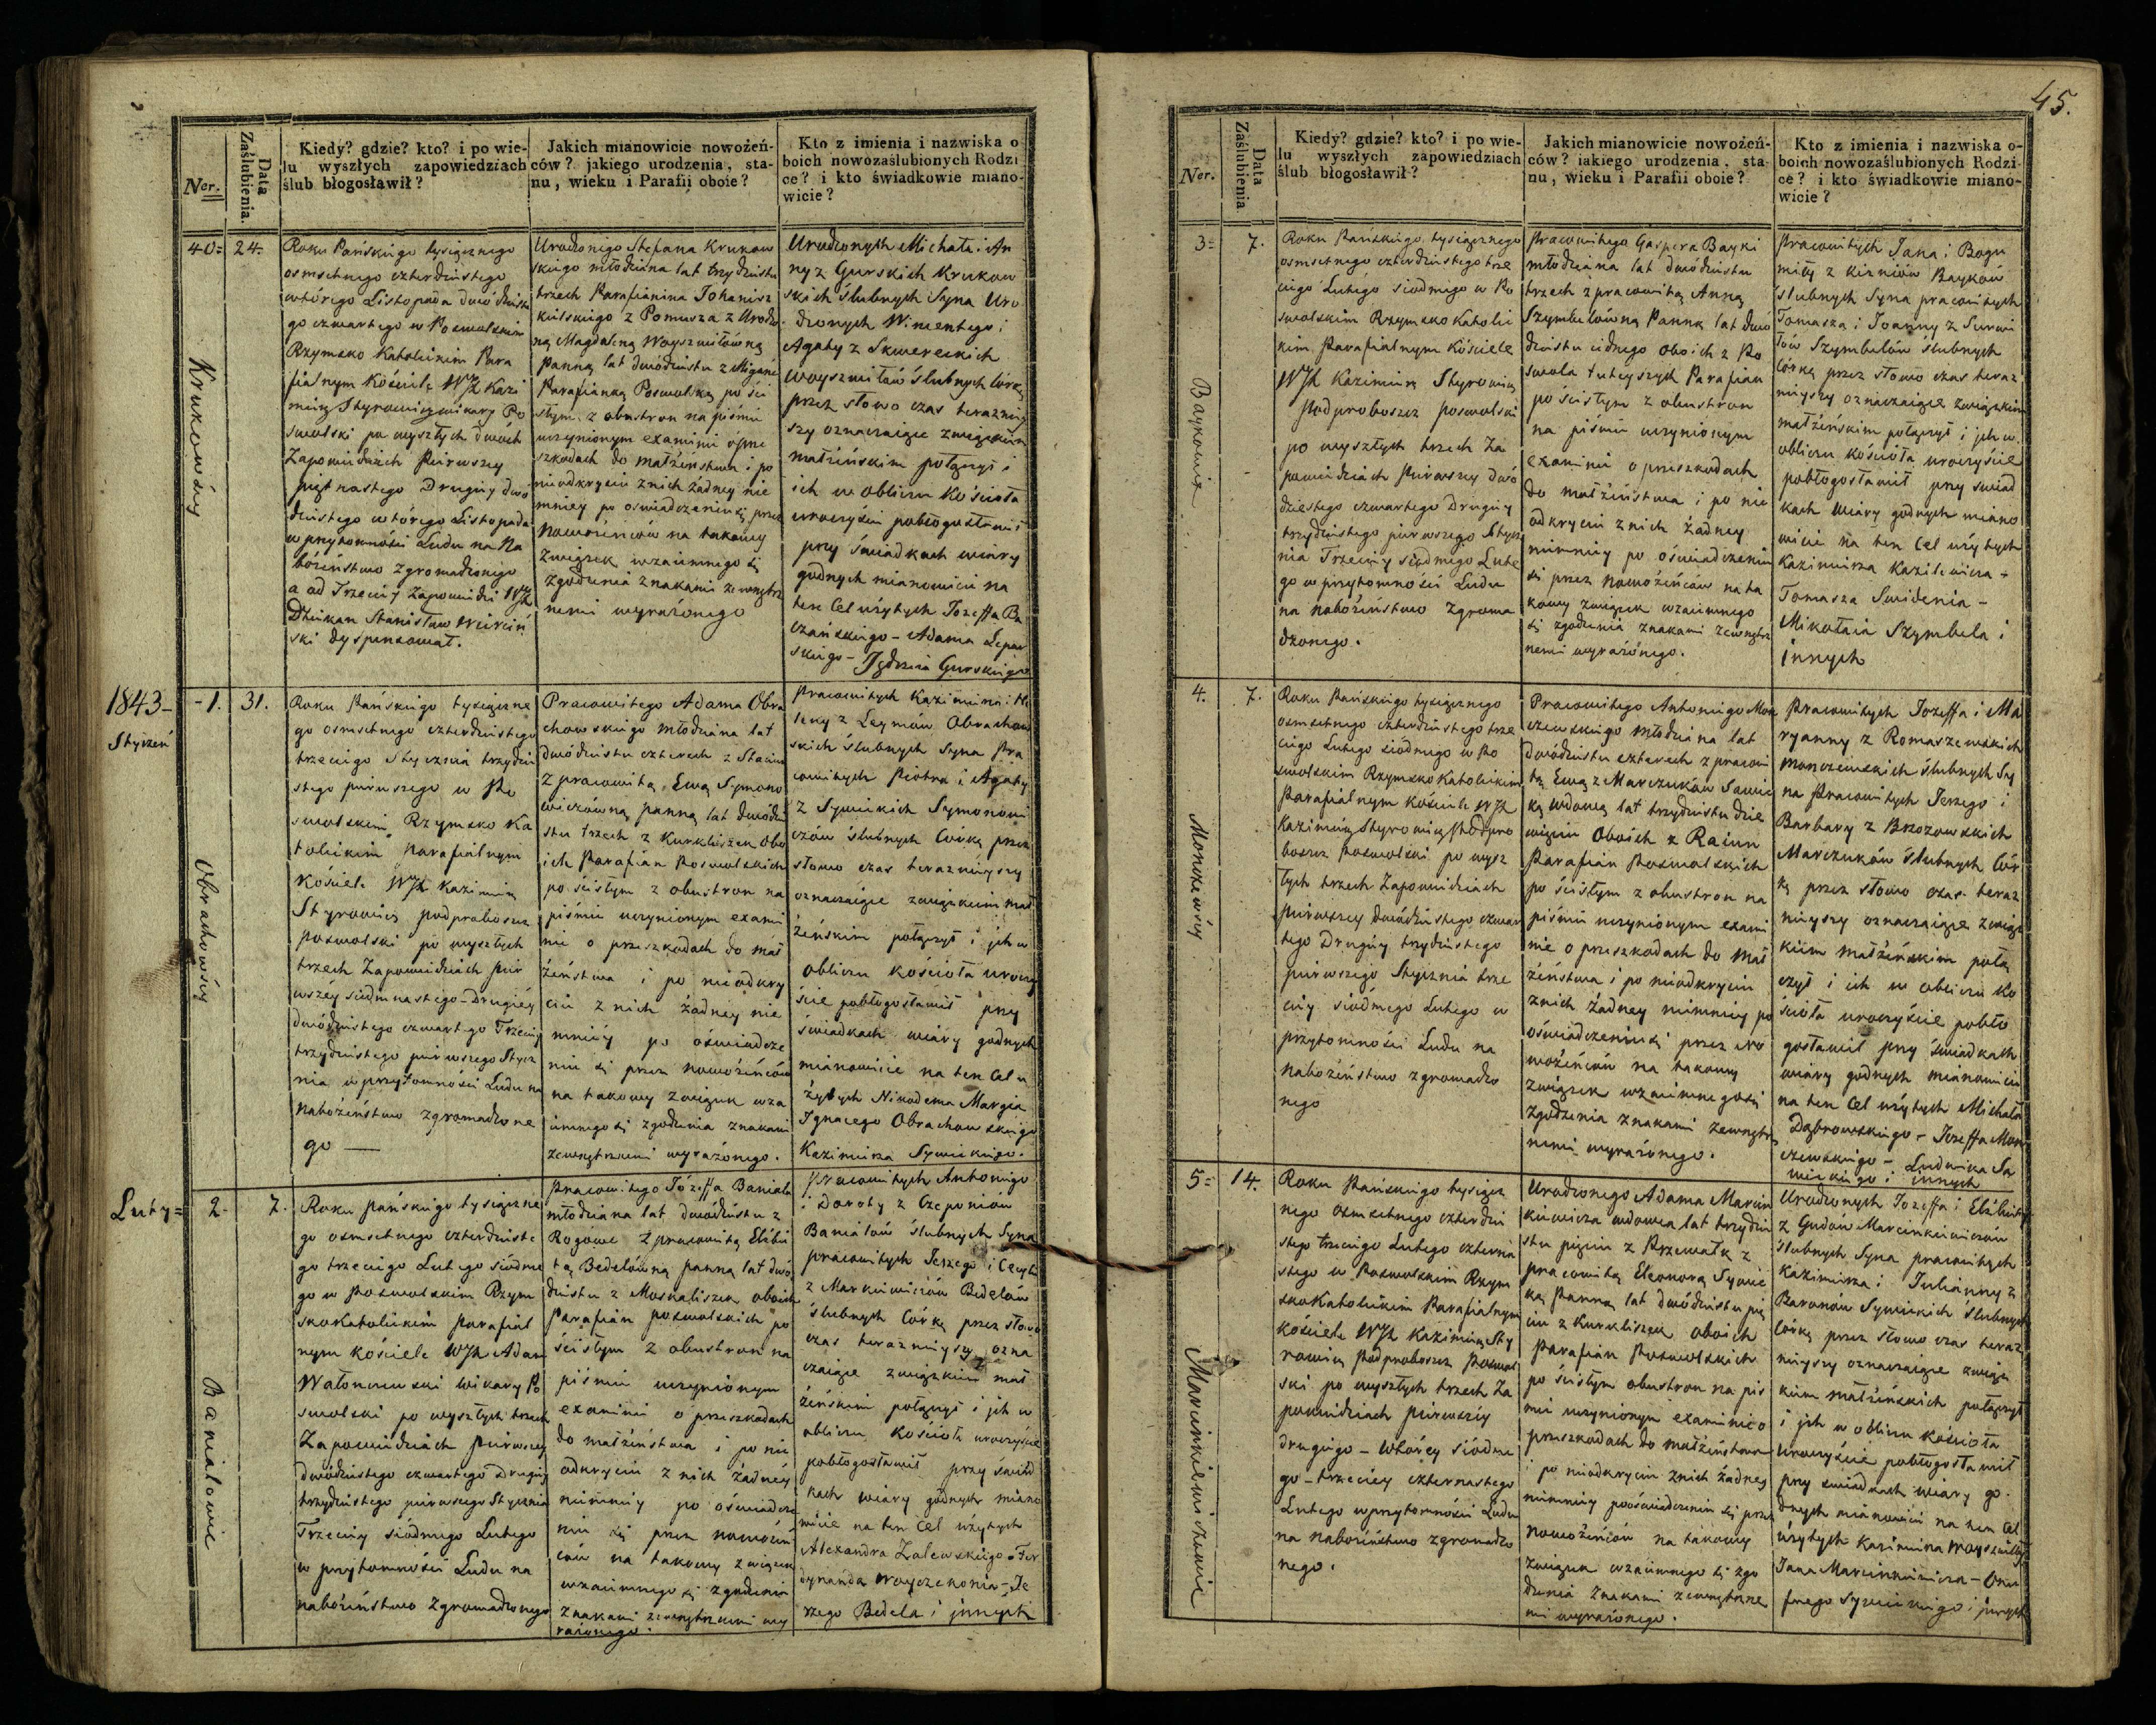 45.
Ner.
Data Zaślubienia.
Kiedy? gdzie? kto? i po wie-
lu wyszłych zapowiedziach
ślub błogosławił?
Jakich mianowicie nowożeń-
ców? jakiego urodzenia, sta-
nu, wieku i Parafii oboie?
Kto z imienia i nazwiska o
boich nowozaślubionych Rodzi
ce? i kto świadkowie miano-
wicie?
40=
24.
Krukowscy
Roku Pańskiego tysiącznego
osmsetnego czterdziestego
wtórego Listopada dwódziste
go czwartego w Poswolskim
Rzymsko Katolickim Para
fialnym Kościele WJX Kazi
mierz Styrowicz wikary Po
swolski po wyszłych dwóch
Zapowiedziach Pierwszey
piętnastego Drugiey dwó
dziestego wtórego Listopada
w przytomności Ludu na Na
bożeństwo zgromadzonego
a od Trzeciey Zapowiedzi WJX
Dziekan Stanisław
ski dyspensował.
Urodzonego Stefana Krukow
skiego młodziana lat trzydziestu
trzech Parafianina Johanisz
kielskiego z Pomusza z Urodzo
ną Magdaleną Woyszwiłówną
Panną lat dwódziestu z
Parafianką Poswolską po ści
słym z obustron na piśmie
uczynionym examinie o prze
szkodach do małżeństwa i po
nieodkryciu z nich żadney nie
mniey po oswiadczeniu się przez
Nowożeńców na takowy
Związek wzaiemnego się
zgodzenia znakami zewnętrz
nemi wyrażonego
Urodzonych Michała i An
ny z Gurskich Krukow
skich Ślubnych Syna Uro
dzonych Wincentego i
Agaty z Skwereckich
Woyszwiłów Ślubnych Córkę
przez słowo czas teraźniey
szy oznaczaiące związkiem
małżeńskim połączył i
ich w obliczu Kościoła
uroczyście pobłogosławił
przy Świadkach wiary
godnych mianowicie na
ten Cel użytych Jozeffa Ba
czańskiego - Adama Lepar
skiego - Jędrzeia Gurskiego
1843-
Styczeń
-1.
31.
Obrachowscy
Roku Pańskiego tysiączne
go osmsetnego czterdziestego
trzeciego Stycznia trzydzie
stego pierwszego w Po
swolskim Rzymsko Ka
tolickim parafialnym
Kościele WJX Kazimierz
Styrowicz podproboszcz
poswolski po wyszłych
trzech Zapowiedziach pier
wszéy siedmnastego - Drugiéy
dwódziestego czwartego Trzeciey
trzydziestego pierwszego Stycz
nia w przytomności Ludu na
Nabożeństwo zgromadzone
go —
Pracowitego Adama Obra
chowskiego młodziana lat
dwódziestu czterech z
z pracowitą Ewą Symono
wiczówną panną lat dwódzie
stu trzech z Kurkliszek Obo
ich Parafian Poswolskich
po ścisłym z obustron na
piśmie uczynionym exami
nie o przeszkodach do mał
żeństwa i po nieodkry
ciu z nich żadney nie
mniéy po oświadcze
niu się przez nowożeńców
na takowy Związek wza
iemnego się zgodzenia znakami
zewnętrznemi wyrażonego.
Pracowitych Kazimierza i He
leny z Leymów Obrachow
skich Ślubnych Syna Pra
cowitych Piotra i Agaty
z Sywickich Symonowi
czów Ślubnych Córkę przez
słowo czas teraźnieyszy
oznaczaiące związkiem mał
żeńskim połączył i ich w
obliczu kościoła uroczy
ście pobłogosławił przy
świadkach wiary godnych
mianowicie na ten Cel u
żytych Nikodema Margia
Ignacego Obrachowskiego
Kazimierza Sywickiego.
Luty=
2.
7.
Banialowie
Roku pańskiego tysiączne
go osmsetnego czterdzieste
go trzeciego Lutego siódme
go w Poswolskim Rzym
skokatolickim parafial
nym kościele WJX Adam
Watonczewski wikary Po
swolski po wyszłych trzech
Zapowiedziach pierwszey
dwódziestego czwartego Drugiey
trzydziestego pierwszego Stycznia
Trzeciey siódmego Lutego
w przytomności Ludu na
nabożeństwo zgromadzonego
Pracowitego Józeffa Baniala
młodziana lat dwódziestu z
Rogowe z pracowitą Elżbie
tą Bedelówną panną lat dwó
dziestu z Moskaliszek oboich
Parafian poswolskich po
ścisłym z obustron na
piśmie uczynionym
examinie o przeszkodach
do małżeństwa i po nie
odkryciu z nich żadnéy
niemniey po oświadcze
niu się przez nowożeń
ców na takowy związek
wzaiemnego się zgodzenia
znakami zewnętrznemi wy
rażonego.
Pracowitych Antoniego
i Doroty z Czeponiów
Banialów ślubnych Syna
pracowitych Jerzego i Cecyli
z Markiewiczów Bedelów
ślubnych Córkę przez słowo
czas teraźnieyszy ozna
czaiące związkiem mał
żeńskim połączył i ich w
obliczu Kościoła uroczyście
pobłogosławił przy świad
kach wiary godnych miano
wicie na ten Cel użytych
Alexandra Zalewskiego - Fer
dynanda Woyczekonia - Je
rzego Bedela i innych
Ner.
Data Zaślubienia
Kiedy? gdzie? kto? i po wie-
lu wyszłych zapowiedziach
ślub błogosławił?
Jakich mianowicie nowożeń-
ców? iakiego urodzenia, sta-
nu, wieku i Parafii oboie?
Kto z imienia i nazwiska o-
boich nowozaślubionych Rodzi-
ce? i kto świadkowie miano-
wicie?
3=
7.
Baykowie
Roku Pańskiego tysiącznego
osmsetnego czterdziestego trze
ciego Lutego siódmego w Po
swolskim Rzymsko Katolic
kim Parafialnym Kościele
WJX Kazimierz Styrowicz
Podproboszcz poswolski
po wyszłych trzech Za
powiedziach Pierwszey dwó
dziestego czwartego Drugiey
trzydziestego pierwszego Stycz
nia Trzeciey siódmego Lute
go w przytomności Ludu
na nabożeństwo zgroma
dzonego.
Pracowitego Gaspera Bayki
młodziana lat dwódziestu
trzech z pracowitą Anną
Szymbelówną Panną lat dwó
dziestu iednego oboich z Po
swola tuteyszych Parafian
po ścisłym z obustron
na piśmie uczynionym
examinie o przeszkodach
do małżeństwa i po nie
odkryciu z nich żadney
niemniey po oświadczeniu
się przez Nowożeńców na ta
kowy związek wzaiemnego
się zgodzenia znakami zewnętrz
nemi wyrażonego.
Pracowitych Jana i Bogu
miły z Kirniów Bayków
ślubnych Syna pracowitych
Tomasza i Joanny z Surwi
łów Szymbelów ślubnych
Córkę przez słowo czas teraz
nieyszy oznaczaiące związkiem
małżeńskim połączył i ich w
obliczu kościoła uroczyście
pobłogosławił przy swiad
kach wiary godnych miano
wicie na ten Cel użytych
Kazimierza Kazilewicza -
Tomasza Swidenia -
Mikołaia Szymbela i
innych
4.
7.
Monczewscy
Roku Pańskiego tysiącznego
osmsetnego czterdziestego trze
ciego Lutego siódmego w Po
swolskim Rzymsko Katolickim
Parafialnym Kościele WJX
Kazimierz Styrowicz Podpro
boszcz Poswolski po wysz
łych trzech Zapowiedziach
pierwszey dwódziestego czwar
tego Drugiey trzydziestego
pierwszego Stycznia trze
ciey siódmego Lutego w
przytomności Ludu na
Nabożeństwo zgromadzo
nego
Pracowitego Antoniego Mon
czewskiego młodziana lat
dwódziestu czterech z pracowi
tą Ewą z Marczuków Sawic
ką wdową lat trzydziestu dzie
więciu Oboich z Raiun
Parafian Poswolskich
po ścisłym z obustron na
piśmie uczynionym exami
nie o przeszkodach do mał
żeństwa i po nieodkryciu
z nich żadney niemniey po
oświadczeniu się przez No
wożeńców na takowy
związek wzaiemnego się
zgodzenia znakami zewnętrz
nemi wyrażonego.
Pracowitych Jozeffa i Ma
ryanny z Romaszewskich
Monczewskich ślubnych Sy
na Pracowitych Jerzego i
Barbary z Brzozowskich
Marczuków ślubnych Cór
kę przez słowo czas teraz
nieyszy oznaczaiące związ
kiem małżeńskim połą
czył i ich w obliczu Ko
ścioła uroczyście pobło
gosławił przy świadkach
wiary godnych mianowicie
na ten Cel użytych Michała
Dąbrowskiego - Jozeffa Mon
czewskiego - Ludwika Sa
wickiego i innych
5=
14.
Marcinkiewiczowie
Roku Pańskiego tysiącz
nego osmsetnego czterdzie
stego trzeciego Lutego czterna
stego w Poswolskim Rzym
skoKatolickim Parafialnym
kościele WJX Kazimierz Sty
rowicz Podproboszcz Poswol
ski po wyszłych trzech Za
powiedziach pierwszéy
drugiego - wtórey siódme
go - trzeciey czternastego
Lutego w przytomności Ludu
na nabożeństwo zgromadzo
nego.
Urodzonego Adama Marcin
kiewicza wdowca lat trzydzie
stu pięciu z Przewałk z
pracowitą Eleonorą Sywic
ką Panną lat dwódziestu pię
ciu z Kurkliszek oboich
Parafian Poswolskich
po ścisłym obustron na piś
mie uczynionym examinie o
przeszkodach do małżeństwa
i po nieodkryciu z nich żadney
niemniey po oświadczeniu się przez
nowożeńców na takowy
związek wzaiemnego się zgo
dzenia znakami zewnętrzne
mi wyrażonego.
Urodzonych Jozeffa i Elżbiety
z Gudów Marcinkiewiczów
ślubnych Syna pracowitych
Kazimierza i Julianny z
Baronów Sywickich ślubnych
Córkę przez słowo czas teraz
nieyszy oznaczaiące związ
kiem małżeńskich połączył
i ich w obliczu kościoła
uroczyście pobłogosławił
przy swiadkach wiary go-
dnych mianowicie na ten Cel
użytych Kazimierza Woyszwiłły
Jana Marcinkiewicza - Onu
frego Sywickiego i innych